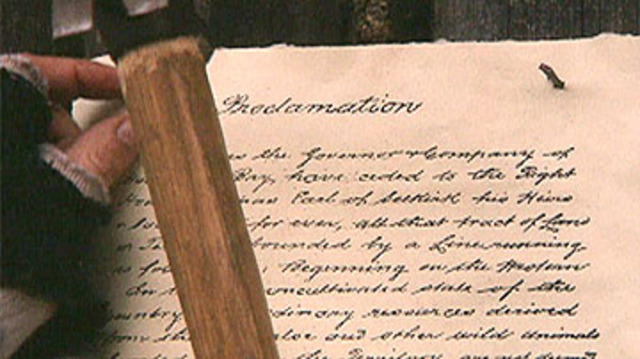 Proclamation
the Governor & Company of
Bay have ceded to the Right
Earl of Selkirk his Heirs
for ever, all that tract of Land
bounded by a Line running
Beginning on the Western
uncultivated state of the
ountry dinary resources derived
and other wild animals
the Territory are not